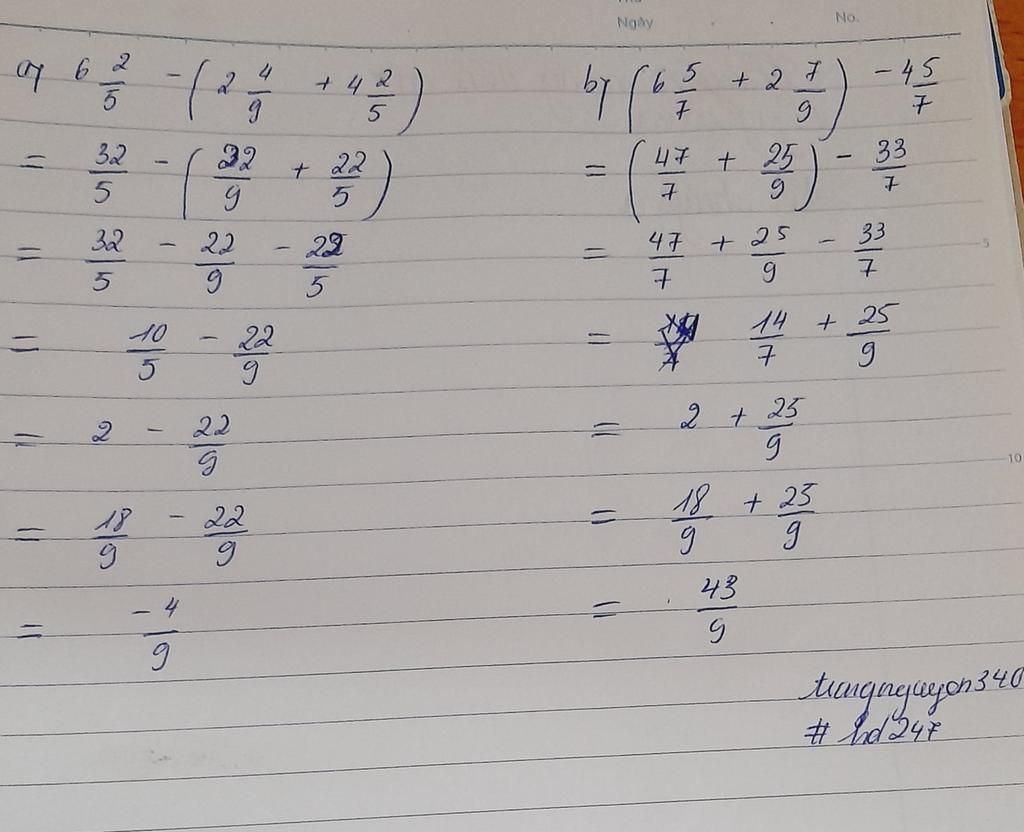 Ngày No.
a) 6 2/5 - (2 4/9 + 4 2/5)
= 32/5 - (22/9 + 22/5)
= 32/5 - 22/9 - 22/5
= 10/5 - 22/9
= 2 - 22/9
= 18/9 - 22/9
= -4/9
b) (6 5/7 + 2 7/9) - 4 5/7
= (47/7 + 25/9) - 33/7
= 47/7 + 25/9 - 33/7
= 14/7 + 25/9
= 2 + 25/9
= 18/9 + 25/9
= 43/9
5
10
# hd247